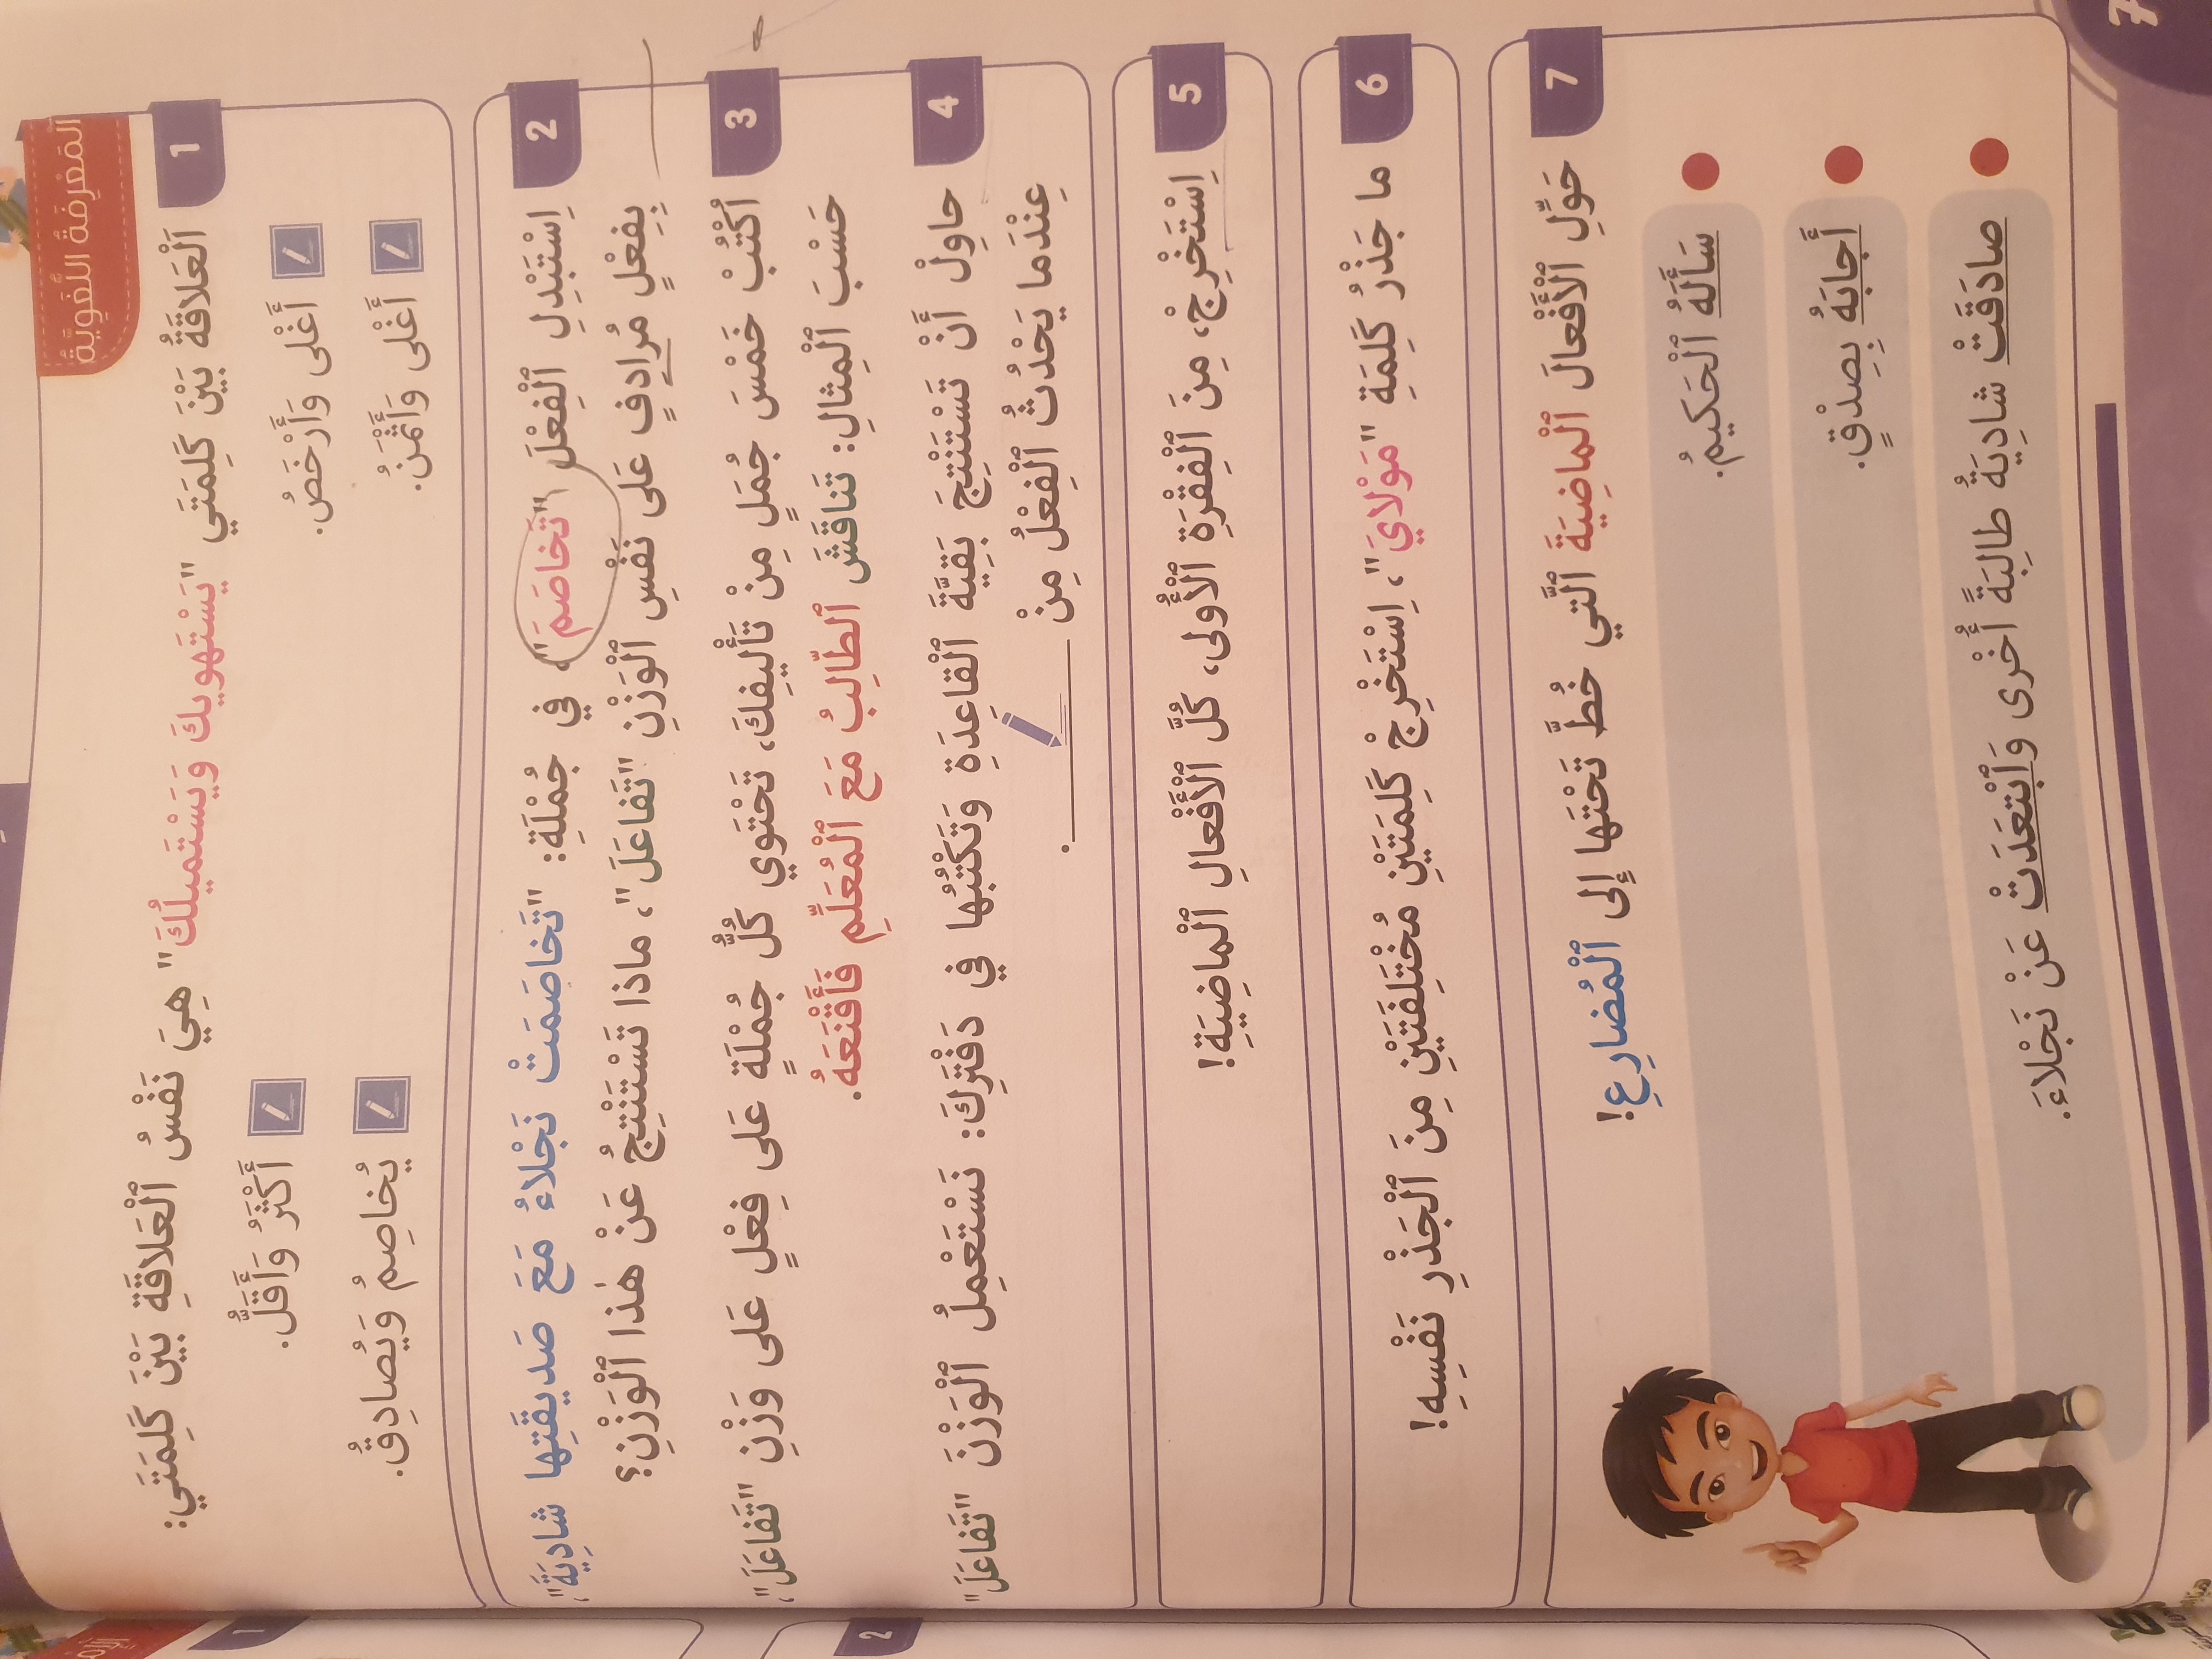 اَلْمَعْرِفَةُ اللُّغَوِيَّةُ
1
اَلْعَلاقَةُ بَيْنَ كَلِمَتَي "يَسْتَهْويكَ وَيَسْتَميلُكَ" هِيَ نَفْسُ ٱلْعَلاقَةِ بَيْنَ كَلِمَتَي:
أَغْلى وَأَرْخَصُ. أَكْثَرُ وَأَقَلُّ.
أَغْلى وَأَثْمَنُ. يُخاصِمُ وَيُصادِقُ.
2
اِسْتَبْدِلِ ٱلْفِعْلَ "تَخاصَمَ"، في جُمْلَةِ: "تَخاصَمَتْ نَجْلاءُ مَعَ صَديقَتِها شادِيَةَ"،
بِفِعْلٍ مُرادِفٍ عَلى نَفْسِ ٱلْوَزْنِ "تَفاعَلَ"، ماذا تَسْتَنْتِجُ عَنْ هٰذا ٱلْوَزْنِ؟
3
اُكْتُبْ خَمْسَ جُمَلٍ مِنْ تَأْليفِكَ، تَحْتَوي كُلُّ جُمْلَةٍ عَلى فِعْلٍ عَلى وَزْنِ "تَفاعَلَ"،
حَسْبَ ٱلْمِثالِ: تَناقَشَ ٱلطّالِبُ مَعَ ٱلْمُعَلِّمِ فَأَقْنَعَهُ.
4
حاوِلْ أَنْ تَسْتَنْتِجَ بَقِيَّةَ ٱلْقاعِدَةِ وَتَكْتُبُها في دَفْتَرِكَ: نَسْتَعْمِلُ ٱلْوَزْنَ "تَفاعَلَ"
عِنْدَما يَحْدُثُ ٱلْفِعْلُ مِنْ .
5
اِسْتَخْرِجْ، مِنَ ٱلْفِقْرَةِ ٱلْأُولى، كُلَّ ٱلْأَفْعالِ ٱلْماضِيَةِ!
6
ما جَذْرُ كَلِمَةِ "مَوْلايَ"، اِسْتَخْرِجْ كَلِمَتَيْنِ مُخْتَلِفَتَيْنِ مِنَ ٱلْجَذْرِ نَفْسِهِ!
7
حَوِّلِ ٱلْأَفْعالَ ٱلْماضِيَةَ ٱلَّتي خُطَّ تَحْتَها إِلى ٱلْمُضارِعِ!
سَأَلَهُ ٱلْحَكيمُ.
أَجابَهُ بِصِدْقٍ.
صادَقَتْ شادِيَةُ طالِبَةً أُخْرى وَٱبْتَعَدَتْ عَنْ نَجْلاءَ.
7
1
2